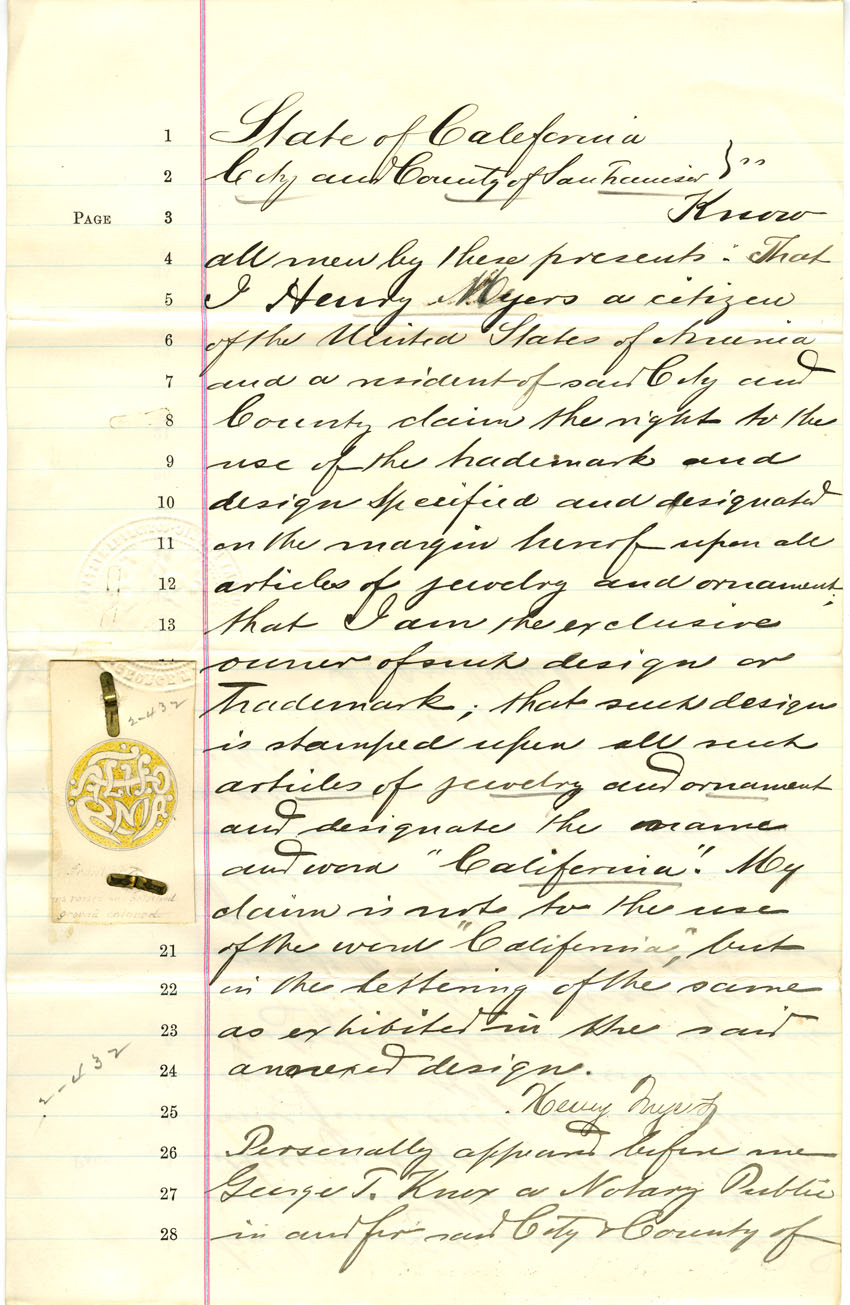 State of California
City and County of San Francisco } ss
Know
PAGE
all men by these presents: That
I Henry Myers a citizen
of the United States of America
and a resident of said City and
County claim the right to the
use of the trademark and
design specified and designated
on the margin hereof upon all
articles of jewelry and ornament;
that I am the exclusive
owner of such design or
trademark; that such design
is stamped upon all such
articles of jewelry and ornament
and designate the name
and word "California". My
claim is not to the use
of the word "California", but
in the lettering of the same
as exhibited in the said
annexed design.
Henry Myers
Personally appeared before me
George T. Knox a Notary Public
in and for said City & County of
1
2
3
4
5
6
7
8
9
10
11
12
13
21
22
23
24
25
26
27
28
2-432
CALIFORNIA
ground
2-432